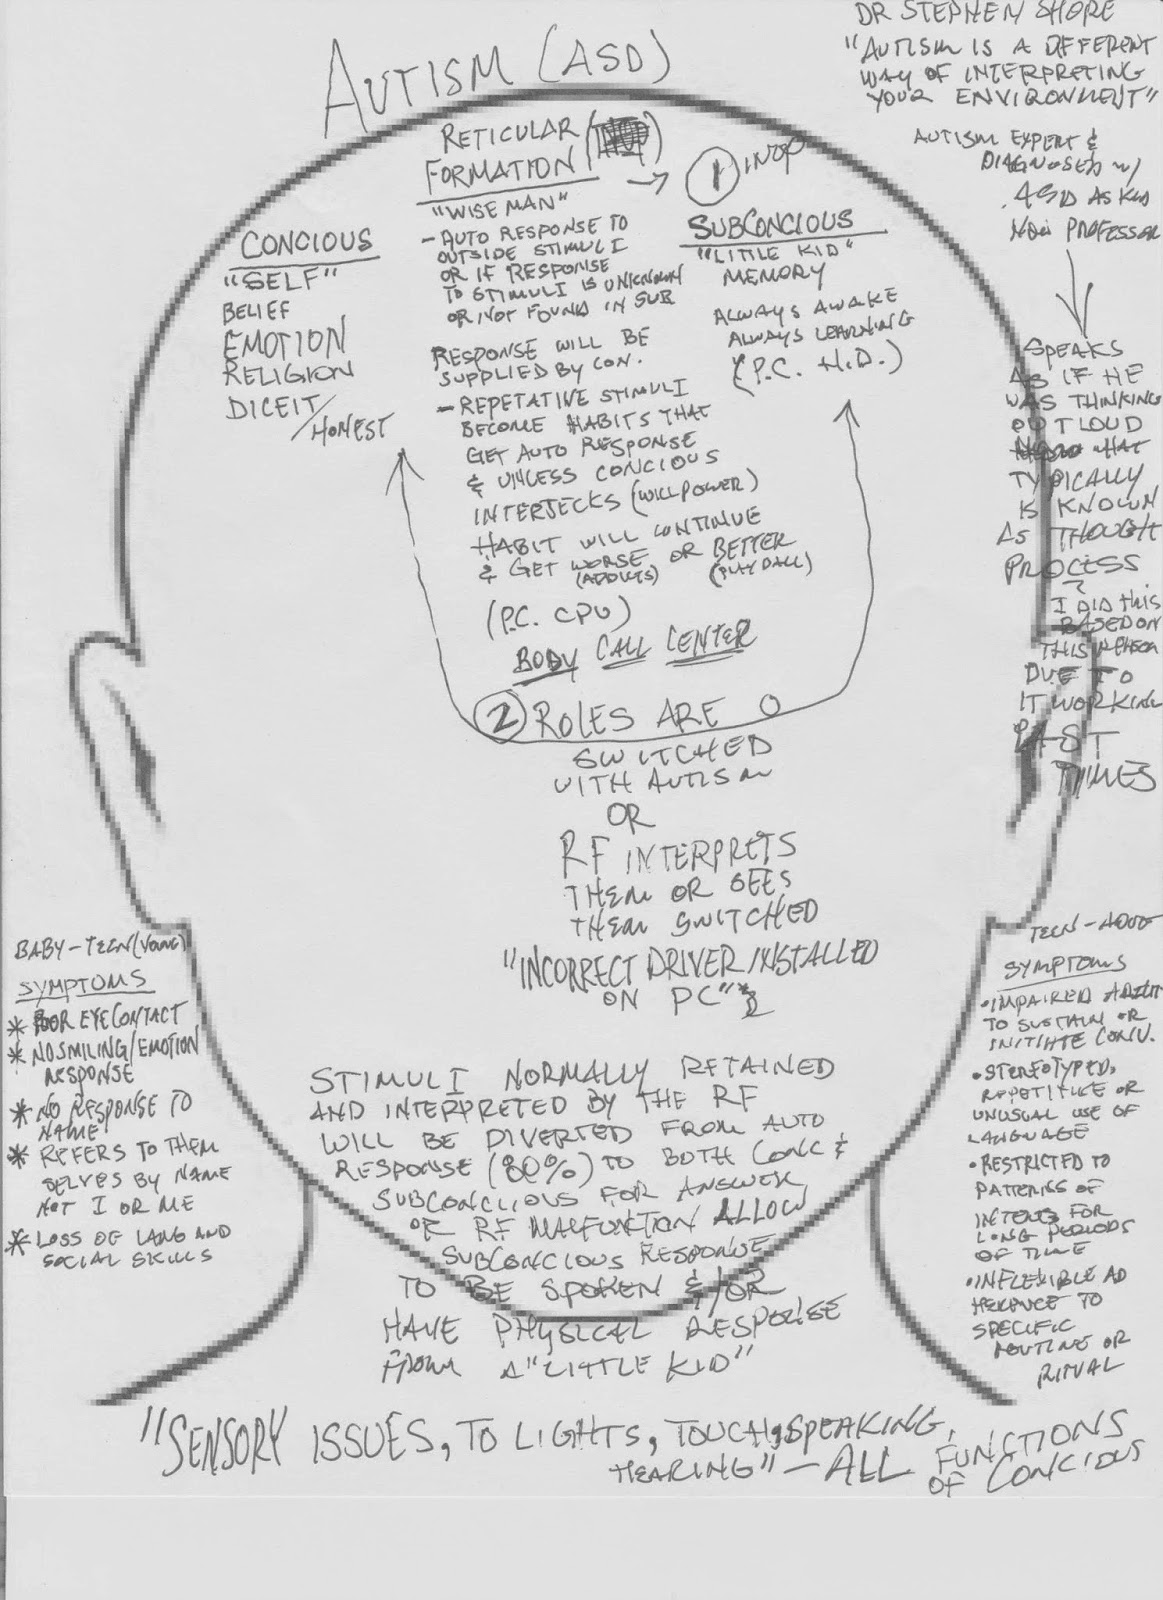 AUTISM (ASD)
DR STEPHEN SHORE
"AUTISM IS A DIFFERENT
WAY OF INTERPRETING
YOUR ENVIRONMENT"
AUTISM EXPERT &
DIAGNOSED W/
ASD AS KID
NOW PROFESSOR
SPEAKS
AS IF HE
WAS THINKING
OUT LOUD
WHAT
TYPICALLY
IS KNOWN
AS THOUGHT
PROCESS
I DID THIS
BASED ON
THIS REASON
DUE TO
IT WORKING
PAST
TIMES
CONCIOUS
"SELF"
BELIEF
EMOTION
RELIGION
DICEIT/
HONEST
RETICULAR
FORMATION
"WISE MAN"
- AUTO RESPONSE TO
OUTSIDE STIMULI
OR IF RESPONSE
TO STIMULI IS UNKNOWN
OR NOT FOUND IN SUB
RESPONSE WILL BE
SUPPLIED BY CON.
- REPETATIVE STIMULI
BECOME HABITS THAT
GET AUTO RESPONSE
& UNLESS CONCIOUS
INTERJECKS (WILLPOWER)
HABIT WILL CONTINUE
& GET WORSE OR BETTER
(ADDICTS) (PLAY BALL)
(P.C. CPU)
BODY CALL CENTER
1 INOP
SUBCONCIOUS
"LITTLE KID"
MEMORY
ALWAYS AWAKE
ALWAYS LEARNING
(P.C. H.D.)
2 ROLES ARE
SWITCHED
WITH AUTISM
OR
RF INTERPRETS
THEM OR SEES
THEM SWITCHED
"INCORRECT DRIVER INSTALLED
ON PC"
STIMULI NORMALLY RETAINED
AND INTERPRETED BY THE RF
WILL BE DIVERTED FROM AUTO
RESPONSE (80%) TO BOTH CONC &
SUBCONCIOUS FOR ANSWER
OR RF MALFUNKTION ALLOW
SUBCONCIOUS RESPONSE
TO BE SPOKEN &/OR
HAVE PHYSICAL RESPONSE
FROM A "LITTLE KID"
BABY-TEEN (YOUNG)
SYMPTOMS
* POOR EYE CONTACT
* NO SMILING/EMOTION
RESPONSE
* NO RESPONSE TO
NAME
* REFERS TO THEM
SELVES BY NAME
NOT I OR ME
* LOSS OF LANG AND
SOCIAL SKILLS
TEEN-ADULT
SYMPTOMS
• IMPAIRED ABILIT
TO SUSTAIN OR
INITIATE CONV.
• STEREOTYPED,
REPETITIVE OR
UNUSUAL USE OF
LANGUAGE
• RESTRICTED TO
PATTERNS OF
FOR
LONG PERIODS
OF TIME
• INFLEXIBLE AD
HERENCE TO
SPECIFIC
ROUTINE OR
RITUAL
"SENSORY ISSUES, TO LIGHTS, TOUCH, SPEAKING,
HEARING" - ALL FUNCTIONS
OF CONCIOUS